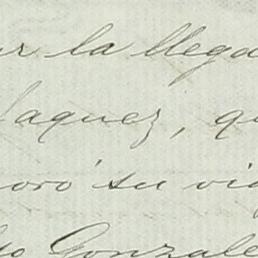 ar la llega
laquez, qu
oró su via
Gonzale